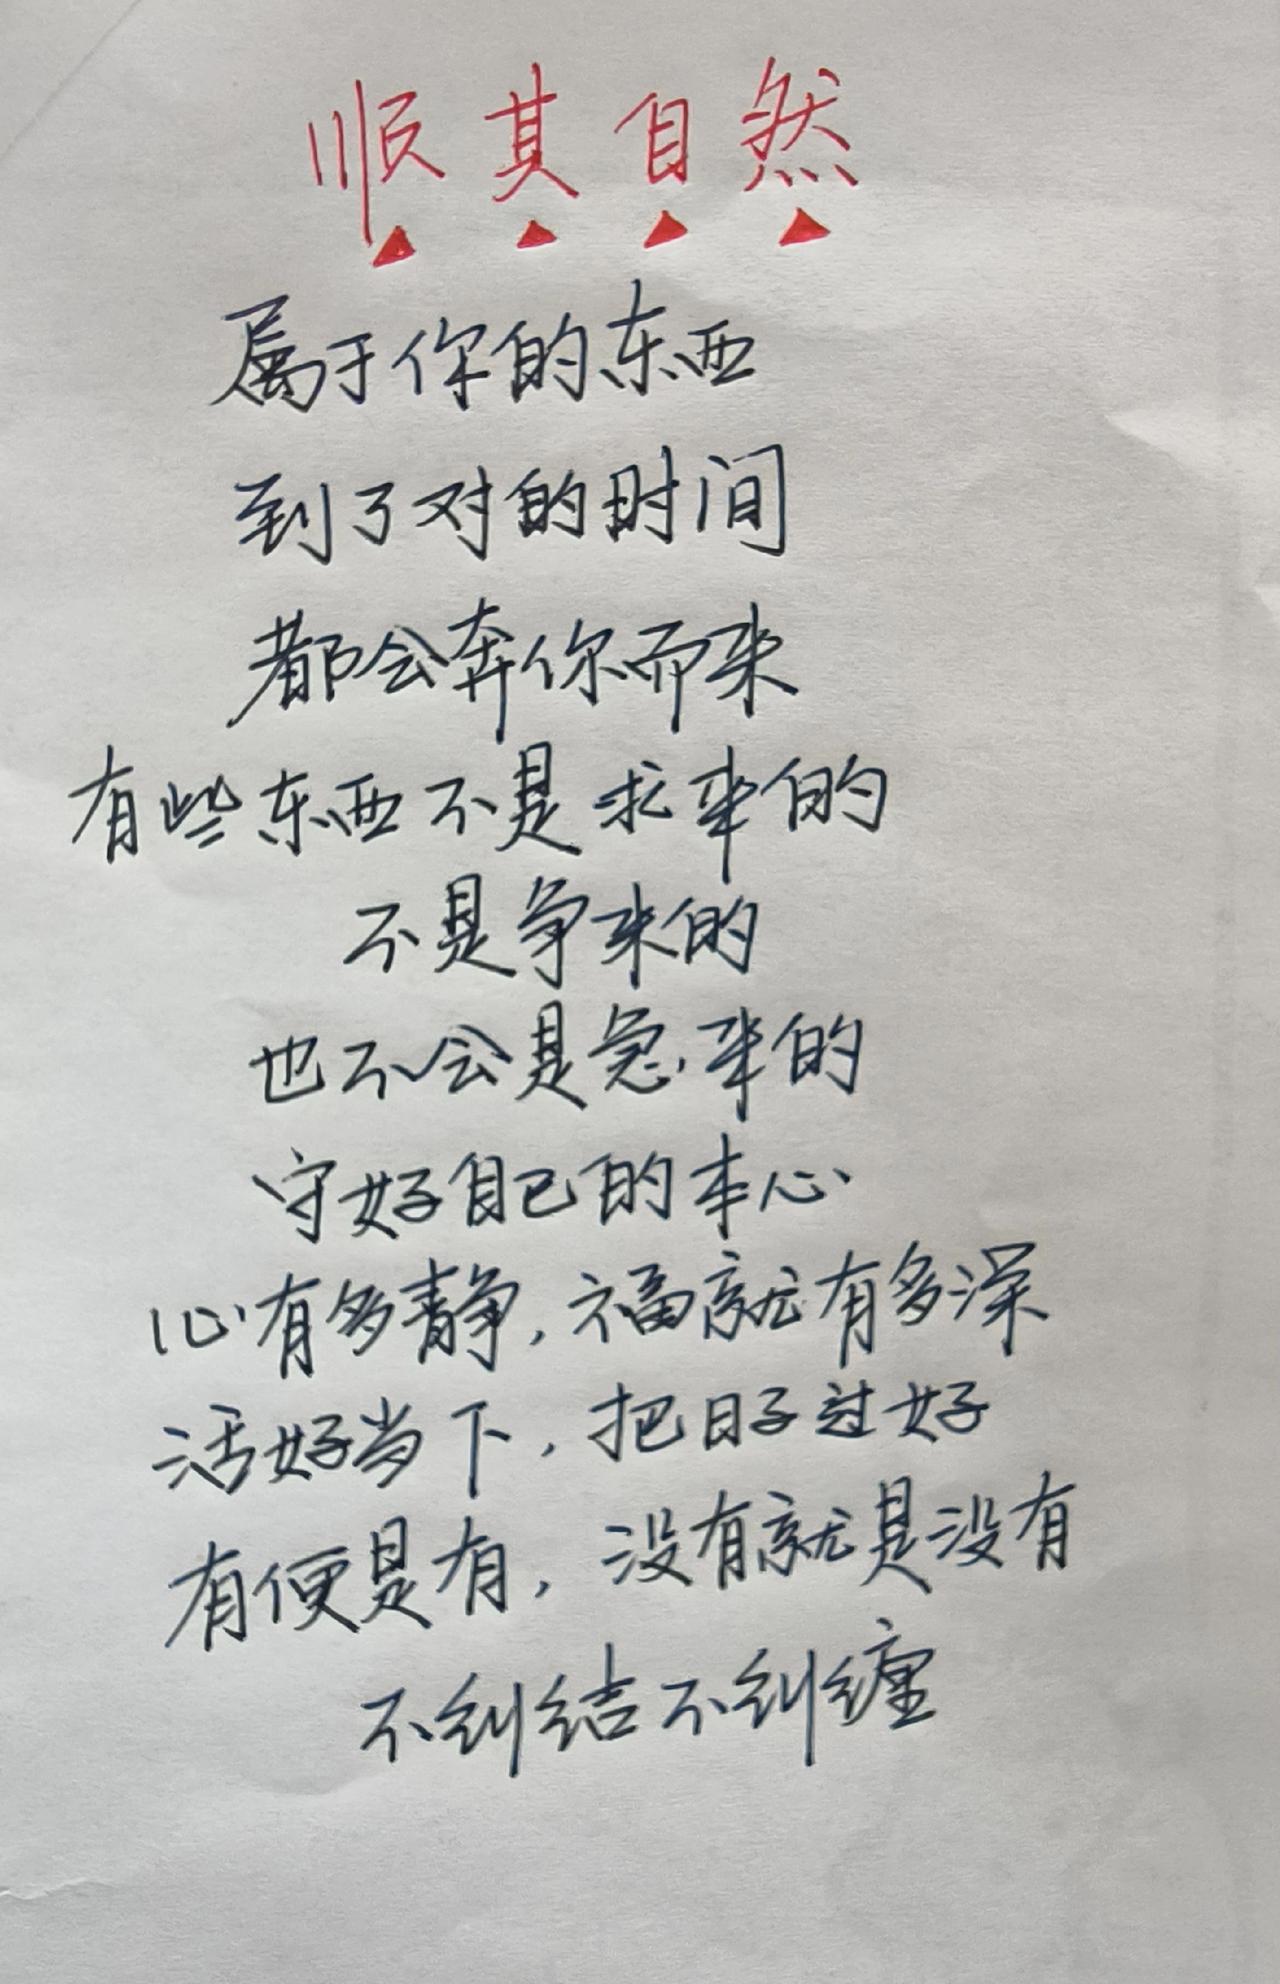 顺其自然
属于你的东西
到了对的时间
都会奔你而来
有些东西不是求来的
不是争来的
也不会是急来的
守好自己的本心
心有多静,福就有多深
活好当下,把日子过好
有便是有,没有就是没有
不纠结不纠缠